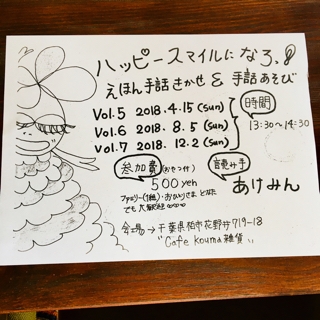 ハッピースマイルになろ。
えほん手話きかせ & 手話あそび
Vol.5 2018.4.15(sun)
Vol.6 2018.8.5(sun)
Vol.7 2018.12.2(sun)
時間
13:30〜14:30
参加費(おやつ付)
500yen
ファミリー(1組)・おひとりさま どなた
でも大歓迎∞∞
読み手
あけみん
会場→千葉県柏市花野井719-18
"Cafe kouma雑貨"